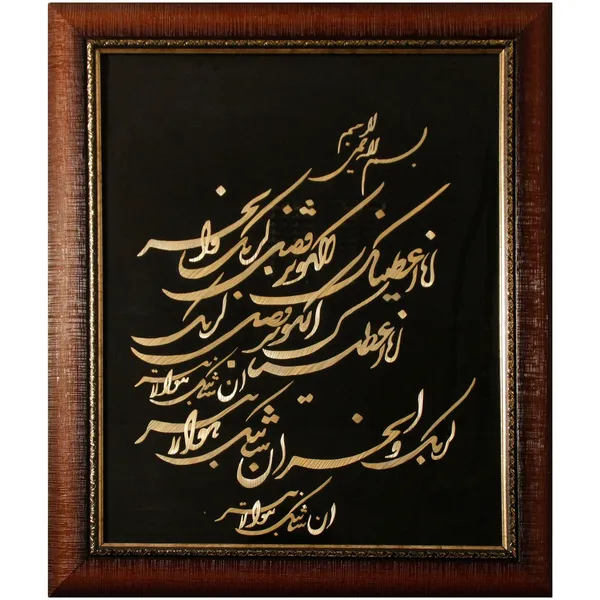 بسم الله الرحمن الرحیم
انا اعطیناک الکوثر فصل لربک وانحر
انا اعطیناک الکوثر فصل لربک
ان شانئک هو الابتر
لربک وانحر ان شانئک هو الابتر
ان شانئک هو الابتر